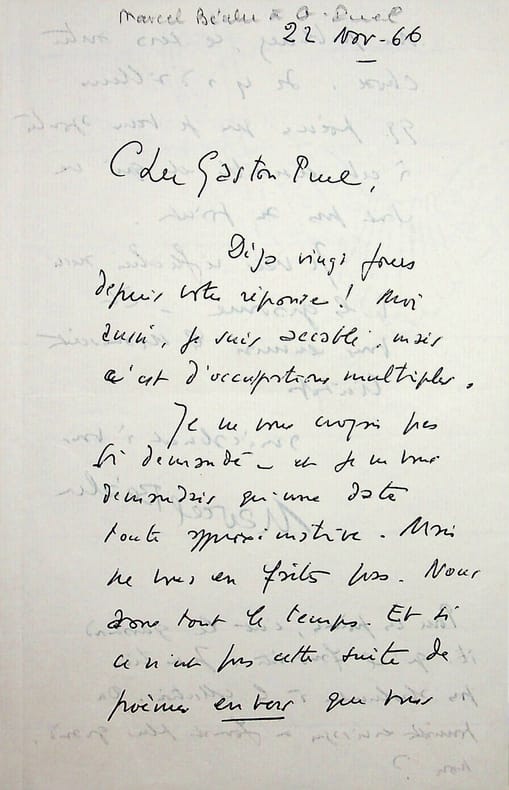 Marcel Béalu à G. Puel
22 Nov-66
Cher Gaston Puel,
Déjà vingt jours
depuis votre réponse ! Moi
aussi, je suis accablé, mais
c'est d'occupations multiples.
Je ne vous croyais pas
si demandé – et je ne vous
demandais qu'une date
toute approximative. Mais
ne vous en faites pas. Nous
avons tout le temps. Et si
ce n'est pas cette suite de
poèmes en vers que vous